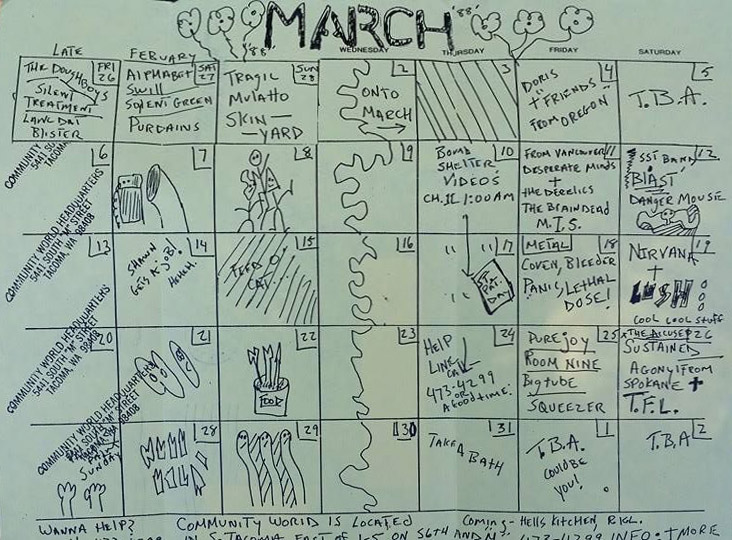 MARCH '88'
'88'
LATE FEBUARY WEDNESDAY THURSDAY FRIDAY SATURDAY
THE DOUGHBOYS
SILENT
TREATMENT
BLISTER
FRI
26
ALPHABET
SWILL
SOYLENT GREEN
PURDAINS
SAT
27
TRAGIC
MULATTO
SKIN —
— YARD
SUN
28
2
ONTO
MARCH
3
DORIS
+ FRIENDS
FROM OREGON
4
5
T.B.A.
6
COMMUNITY WORLD HEADQUARTERS
5441 SOUTH "M" STREET
TACOMA, WA 98408
7
8
9
BOMB
SHELTER
VIDEOS
CH.II 1:00AM
10
FROM VANCOUVER
DESPERATE MINDS
+
THE DERELICS
THE BRAINDEAD
M.I.S.
11
SST BAND
BLAST
DANGER MOUSE
12
13
COMMUNITY WORLD HEADQUARTERS
5441 SOUTH "M" STREET
TACOMA, WA 98408
SHAWN
GETS A JOB!
HEHEH.
14
FEED O
CAT.
15
16
" " 17
" "
ST.
PAT.
DAY
METAL
COVEN, BLEEDER
PANIC, LETHAL
DOSE!
18
NIRVANA
+
LUSH
COOL COOL STUFF
19
20
COMMUNITY WORLD HEADQUARTERS
5441 SOUTH "M" STREET
TACOMA, WA 98408
21
22
FOOD
23
HELP
LINE
CALL
473-4299
OR
A GOOD TIME.
24
PURE JOY
ROOM NINE
BIGTUBE
SQUEEZER
25
THE ACCUSED
SUSTAINED
AGONY (FROM
SPOKANE +
T.F.L.
26
SUNDAY
28
29
30
TAKE A
BATH
31
T.B.A.
COULD BE
YOU!
1
T.B.A.
2
WANNA HELP? COMMUNITY WORLD IS LOCATED COMING- HELLS KITCHEN,
IN S. TACOMA EAST OF I-5 ON 56TH AND M. 473-4299 INFO. + MORE